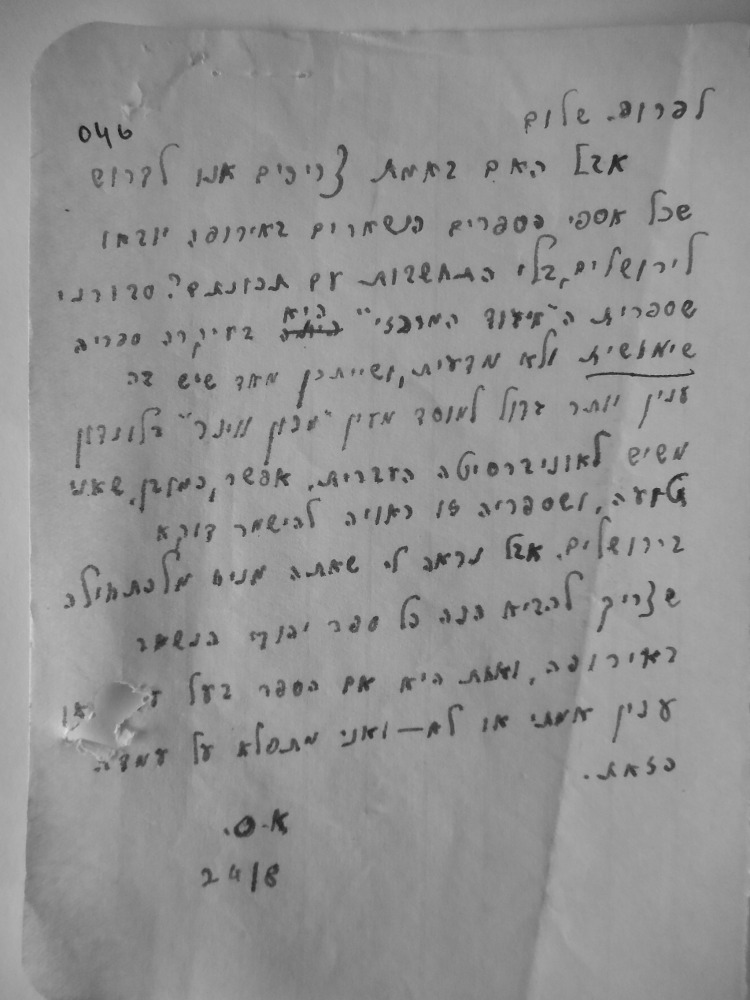 לפרופ. שלום
046
אבל האם באמת צריכים אנו לדרוש
שכל אספי הספרים הנשארים באירופה יובאו
לירושלים, בלי התחשבות עם תכונתם? סבורני
שספרית ה"איגוד המרכזי" היא בעיקרה ספריה
שימושית ולא מדעית, ושייתכן מאד שיש בה
ענין יותר גדול למוסד מעין "מכון וינר" בלונדון
משיש לאוניברסיטה העברית. אפשר, כמובן, שאני
טועה, ושספריה זו ראויה להישמר דוקא
בירושלים. אבל נראה לי שאתה מניח מלכתחילה
שצריך להביא הנה כל ספר יהודי הנשאר
באירופה, ואחת היא אם הספר בעל או
ענין אמתי או לא – ואני מתפלא על עמדה
כזאת.
א.ס.
24/8